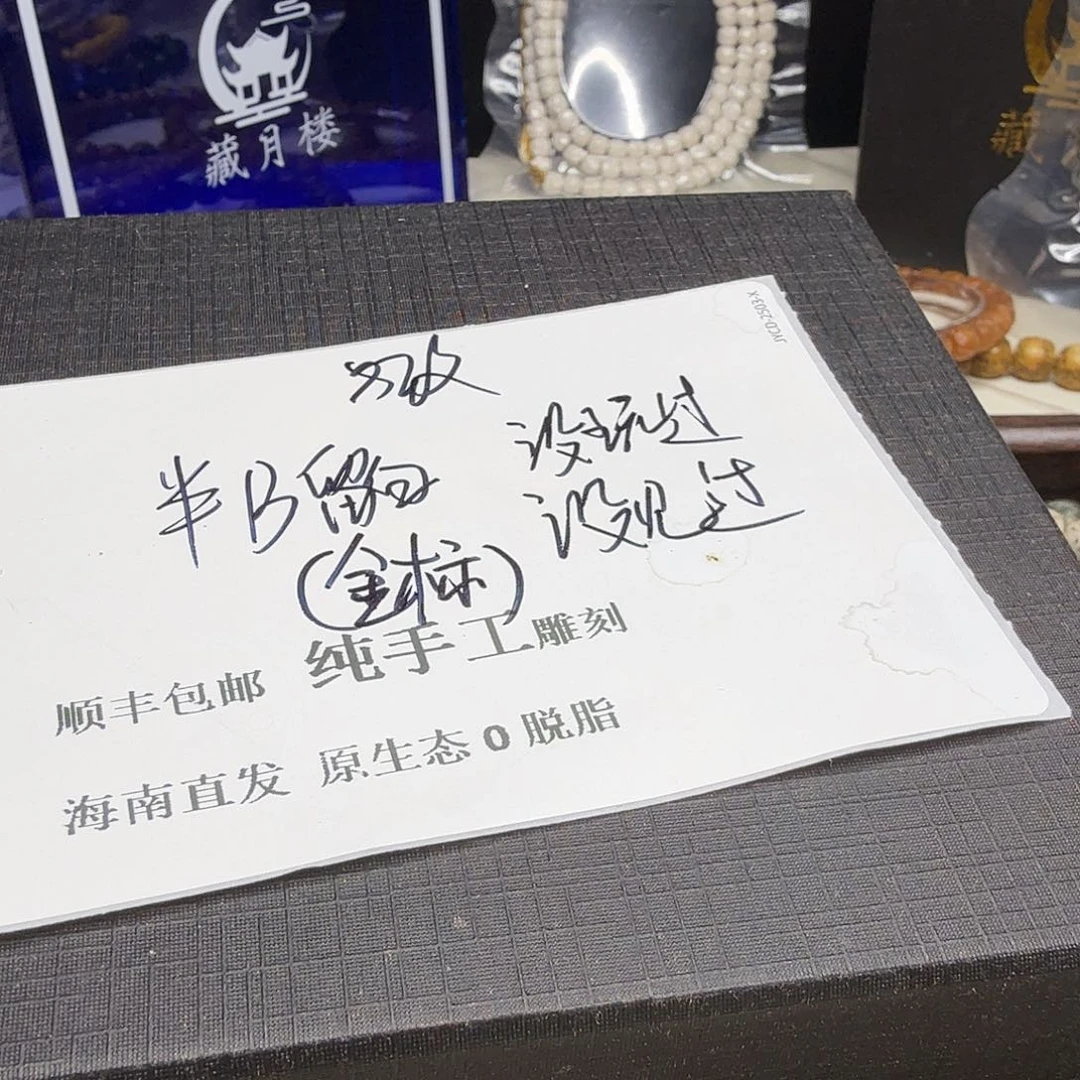 藏月楼
藏
JYCD-2503-X
没玩过
半B留白
没见过
(全标)
纯手工雕刻
顺丰包邮
海南直发 原生态0脱脂